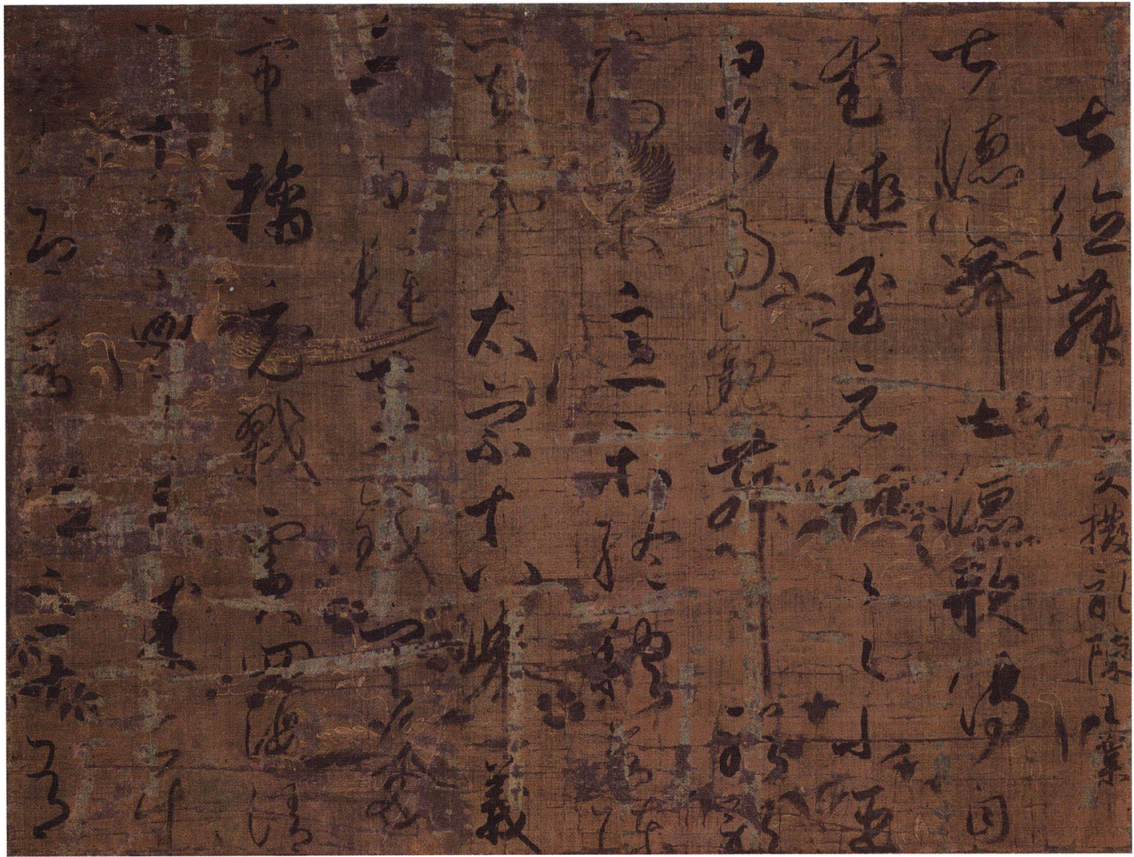 七德舞 美撥乱陳王業
七德舞七德歌傳自
武德至元和々々小臣
白居易觀舞聽歌
知樂意 終稽首陳
其事太宗十八舉義
兵白旄黃鉞定兩京
擒充戮竇四海清
二十有四 業成
即帝位三十有